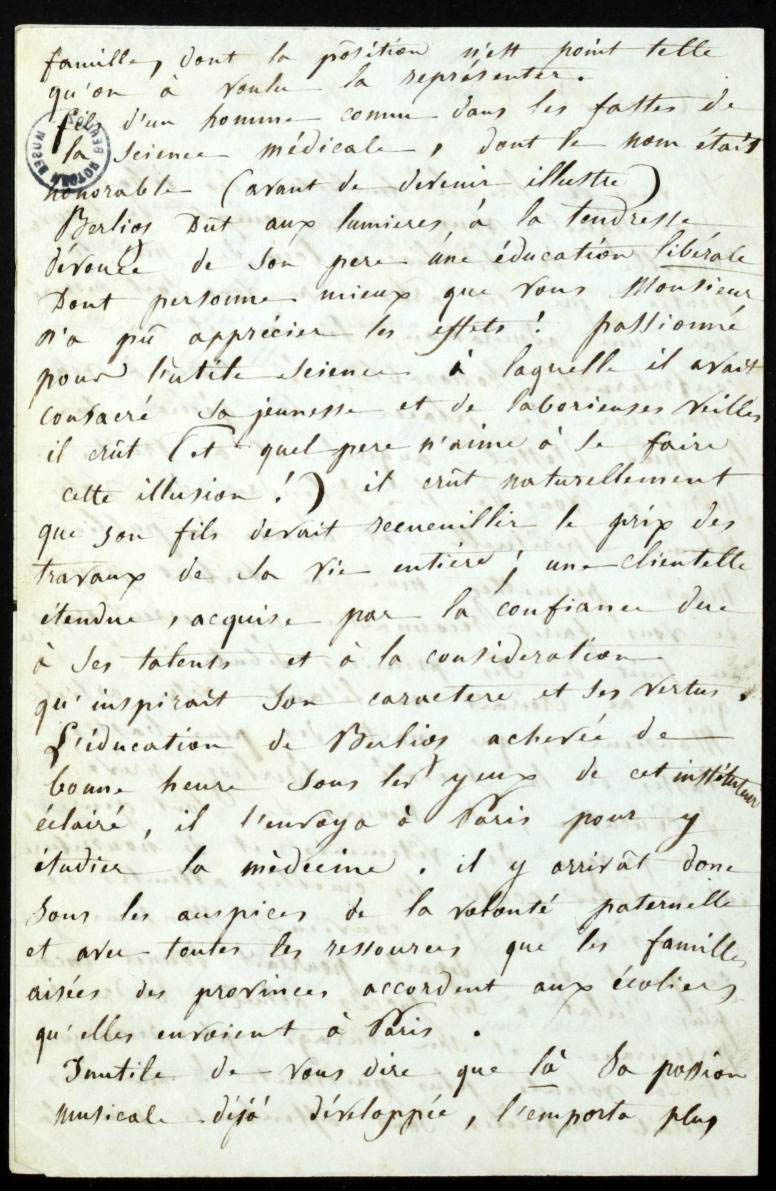 famille, dont la position n'est point telle
qu'on à voulu la représenter.
fils d'un homme connu dans les fastes de
la science médicale, dont le nom était
honorable (avant de devenir illustre)
Berlios Dût aux lumieres, à la tendresse
dévouée de son pere une éducation libérale
Dont personne mieux que vous Monsieur
n'a pû apprécier les effets! passionné
pour l'utile science à laquelle il avait
consacré sa jeunesse et de laborieuses veilles
il crût (et quel pere n'aime à se faire
cette illusion!) il crût naturellement
que son fils devait recueuillir le prix des
travaux de sa vie entière; une clientelle
étendue, acquise par la confiance due
à ses talents et à la consideration
qu'inspirait son caractere et ses vertus.
L'éducation de Berlios achevée de
bonne heure sous les yeux de cet instituteur
éclairé, il l'envoya à Paris pour y
étudier la mèdecine. il y arrivât donc
sous les auspices de la volonté paternelle
et avec toutes les ressources que les familles
aisées des provinces accordent aux écoliers
qu'elles envoient à Paris.
Inutile de vous dire que là sa passion
musicale déjà développée, l'emporta plus